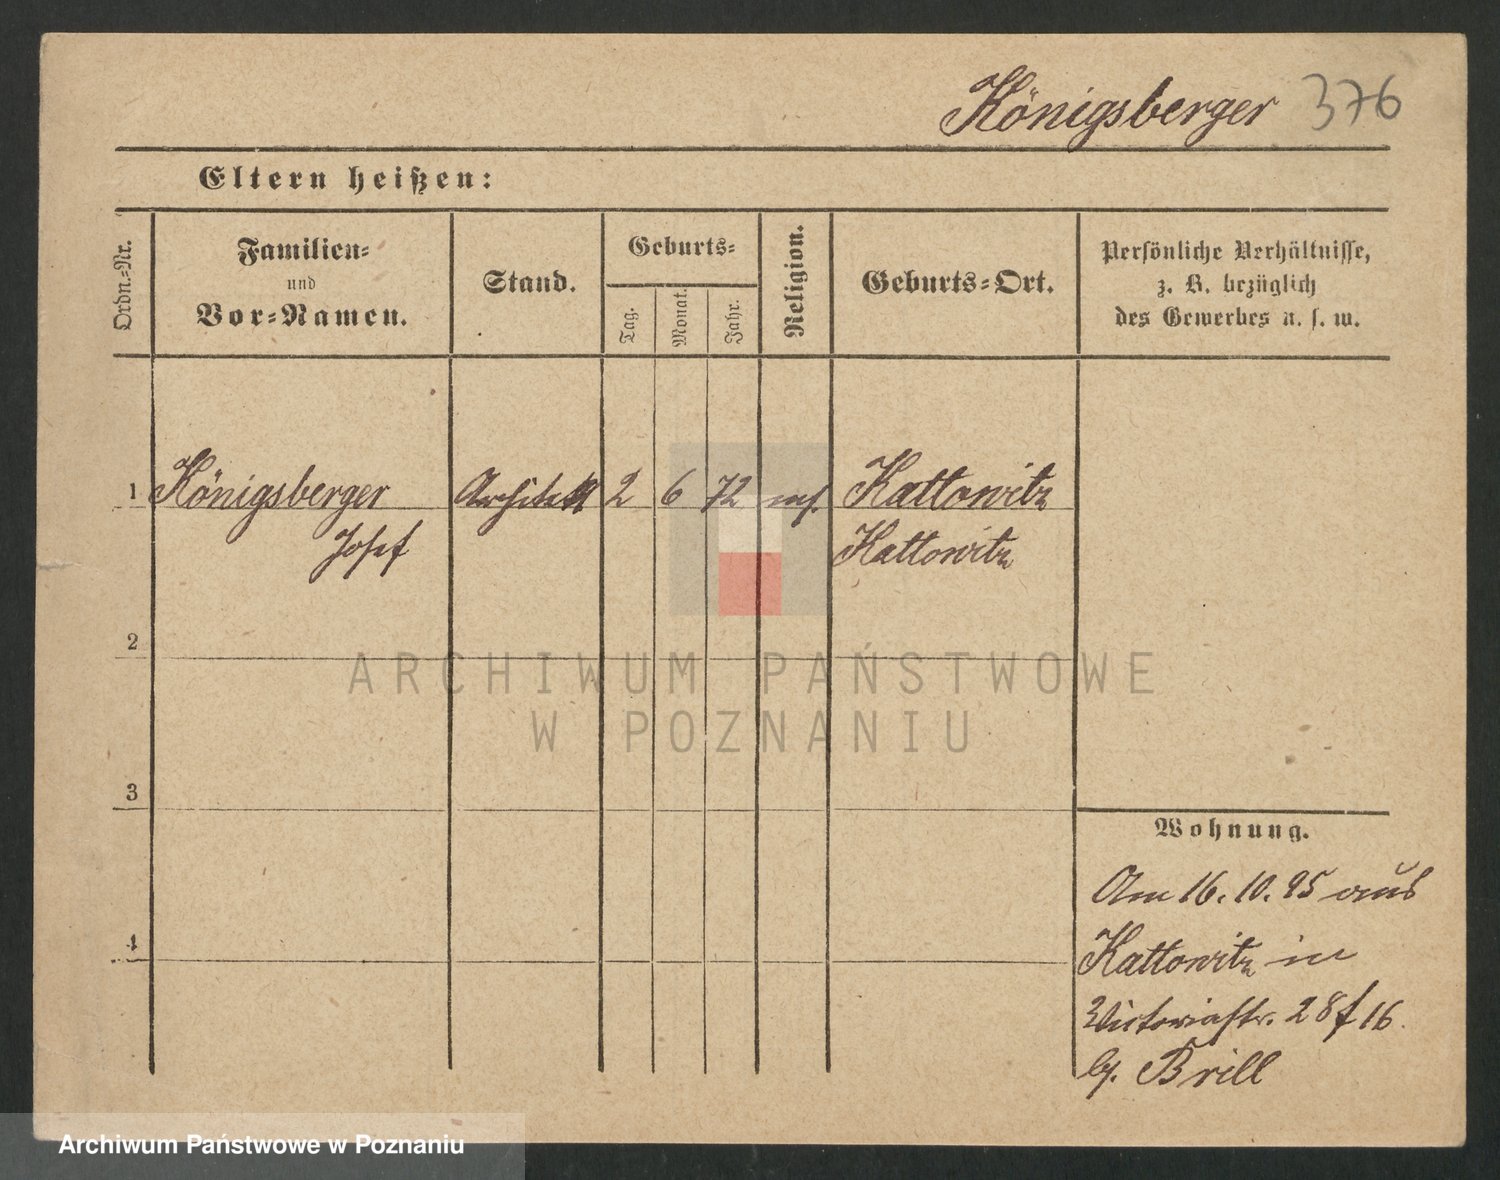 Königsberger 376
Eltern heißen:
Ordn.=Nr.
Familien=
und
Vor=Namen.
Stand.
Geburts=
Tag.
Monat.
Jahr.
Religion.
Geburts=Ort.
Persönliche Verhältnisse,
z. B. bezüglich
des Gewerbes u. s. w.
1 Königsberger Architekt 2 6 72 mos. Kattowitz
Josef Kattowitz
2
3
4
Wohnung.
Am 16.10.95 aus
Kattowitz in
Victoriastr. 28 f 16.
Brill
ARCHIWUM PAŃSTWOWE
W POZNANIU
Archiwum Państwowe w Poznaniu